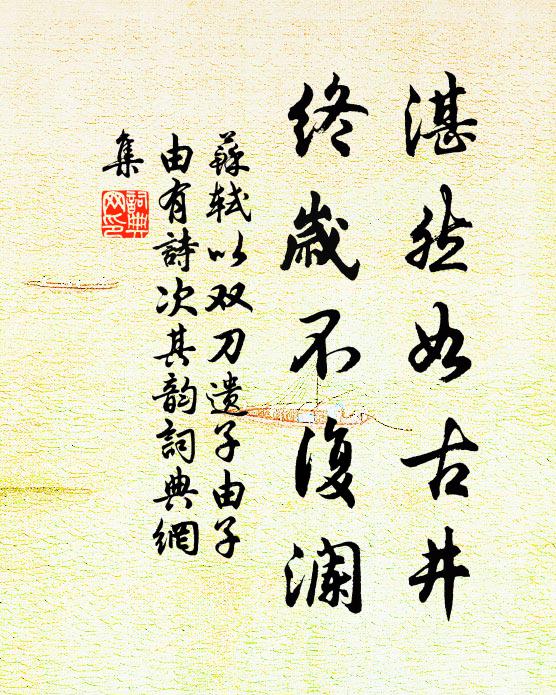 湛然如古井
終歳不復澜
蘇轼以双刀遗子由子
由有詩次其韵詞典網
集
詞典
网印